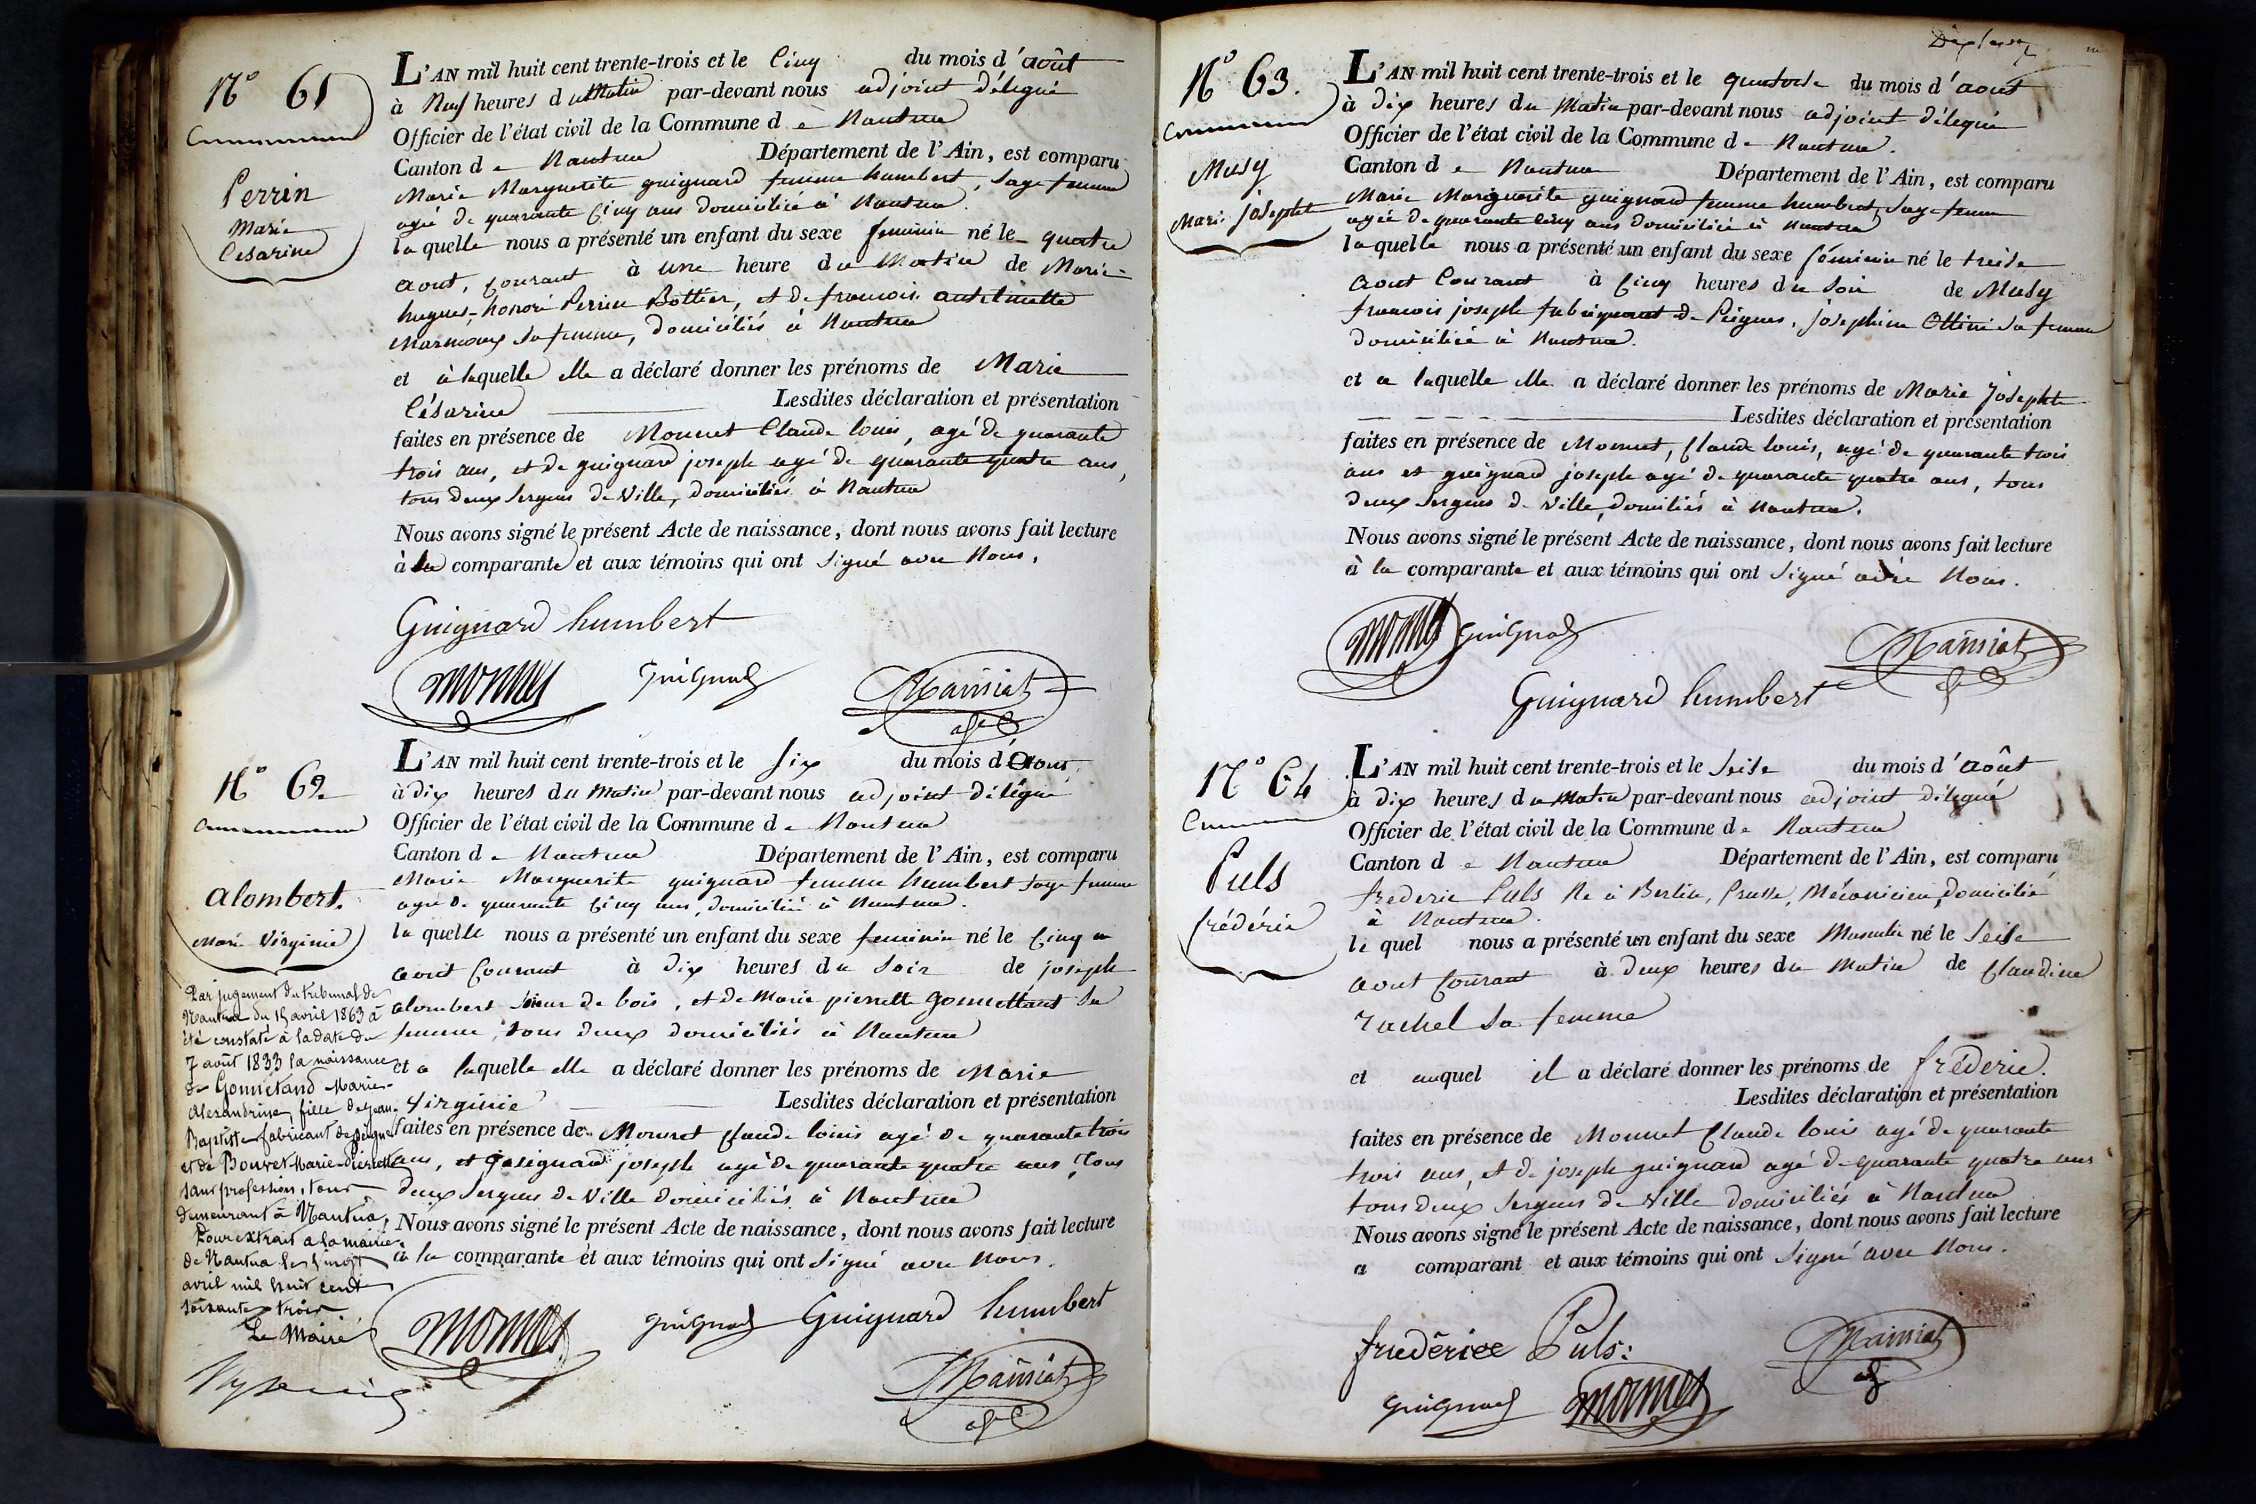 N° 61
Perrin
Marie
Césarine
L'AN mil huit cent trente-trois et le Cinq du mois d'août
à Neuf heures du Matin par-devant nous adjoint délégué
Officier de l'état civil de la Commune de Nantua
Canton de Nantua Département de l'Ain, est comparu
Marie Marguerite guignard femme humbert, Sage femme
agée de quarante Cinq ans domiciliée à Nantua.
la quelle nous a présenté un enfant du sexe feminin né le quatre
aout, courant à une heure du Matin de Marie
hugues-honoré Perrin Bottier, et de francois antoinette
Marmoux sa femme, domiciliés à Nantua
et à laquelle elle a déclaré donner les prénoms de Marie
Césarine Lesdites déclaration et présentation
faites en présence de Monnet Claude louis, agé de quarante
trois ans, et de guignard joseph agé de quarante quatre ans,
tous deux Sergens de Ville, domiciliés à Nantua
Nous avons signé le présent Acte de naissance, dont nous avons fait lecture
à la comparante et aux témoins qui ont Signé avec Nous.
Guignard humbert
monnet guignard Mainiat
N° 62
alombert.
Marie Virginie
Par jugement du tribunal de
Nantua du 15 avril 1863 a
été constaté à la date du
7 août 1833 la naissance
de Gonnétand Marie-
Alexandrine, fille de Jean-
Baptiste fabricant de peignes
et de Bouvet Marie-Pierrette
sans profession, tous
demeurant à Nantua.
Pour extrait à la mairie
de Nantua le vingt
avril mil huit cent
soixante trois
Le Maire
L'AN mil huit cent trente-trois et le Six du mois d'Aout
à dix heures du Matin par-devant nous adjoint délégué
Officier de l'état civil de la Commune de Nantua
Canton de Nantua Département de l'Ain, est comparu
Marie Marguerite guignard femme humbert sage femme
agée de quarante Cinq ans, domiciliée à Nantua.
la quelle nous a présenté un enfant du sexe feminin né le Cinq
aout Courant à dix heures du Soir de joseph
alombert sieur de bois, et de Marie pierrette gonnettant sa
femme, tous deux domiciliés à Nantua
et a laquelle elle a déclaré donner les prénoms de Marie
Virginie Lesdites déclaration et présentation
faites en présence de Monnet Claude louis agé de quarante trois
ans, et guignard joseph agé de quarante quatre ans tous
deux Sergens de Ville domiciliés à Nantua
Nous avons signé le présent Acte de naissance, dont nous avons fait lecture
à la comparante et aux témoins qui ont signé avec Nous.
monnet guignard Guignard humbert
Mainiat
N° 63.
Musy
Marie Josephte
L'AN mil huit cent trente-trois et le quatorse du mois d'aout
à dix heures du Matin par-devant nous adjoint délégué
Officier de l'état civil de la Commune de Nantua.
Canton de Nantua Département de l'Ain, est comparu
Marie Marguerite guignard femme humbert, Sage femme
agée de quarante cinq ans domiciliée à Nantua
la quelle nous a présenté un enfant du sexe féminin né le treise
aout Courant à Cinq heures du Soir de Musy
francois joseph fabriquant de Peignes, josephine Ottini sa femme
domiciliée à Nantua.
et a laquelle elle a déclaré donner les prénoms de Marie Josephte
Lesdites déclaration et présentation
faites en présence de Monnet, Claude louis, agé de quarante trois
ans et guignard joseph agé de quarante quatre ans, tous
deux Sergens de Ville, domiliés à Nantua.
Nous avons signé le présent Acte de naissance, dont nous avons fait lecture
à la comparante et aux témoins qui ont Signé avec Nous.
monnet guignard Mainiat
Guignard humbert
N° 64
Puls
frédéric
L'AN mil huit cent trente-trois et le Seise du mois d'août
à dix heures du Matin par-devant nous adjoint délégué
Officier de l'état civil de la Commune de Nantua
Canton de Nantua Département de l'Ain, est comparu
frederic Puls Né à Berlin, Prusse, Mécanicien, domicilié
à Nantua.
le quel nous a présenté un enfant du sexe Masculin né le Seise
aout Courant à deux heures du Matin de Claudine
rachel sa femme
et auquel il a déclaré donner les prénoms de fréderic.
Lesdites déclaration et présentation
faites en présence de Monnet Claude louis agé de quarante
trois ans, et de joseph guignard agé de quarante quatre ans
tous deux Sergens de Ville domiciliés à Nantua
Nous avons signé le présent Acte de naissance, dont nous avons fait lecture
a comparant et aux témoins qui ont Signé avec Nous.
frederice Puls: Mainiat
guignard monnet